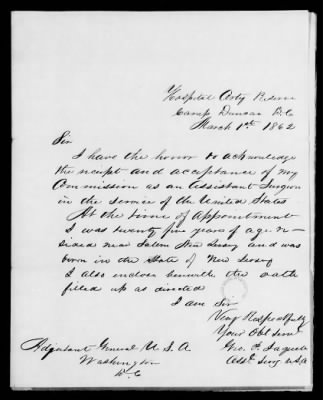 Hospital Arty Reserve
Camp Duncan D.C.
March 1st 1862
Sir
I have the honor to acknowledge
the receipt and acceptance of my
Commission as an Assistant Surgeon
in the service of the United States
At the time of appointment
I was twenty five years of age re-
sided near Salem New Jersey and was
born in the State of New Jersey
I also enclose herewith the oath
filled up as directed
I am Sir
Very Respectfully
Your Obt Servt
Geo. P. Jaquett
Asst Surg U.S.A
Adjutant General U.S.A
Washington
D.C